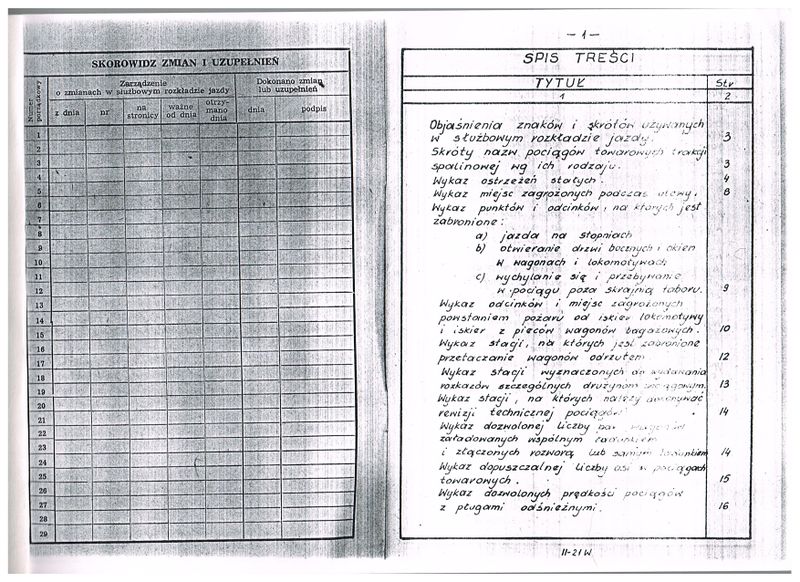 SKOROWIDZ ZMIAN I UZUPEŁNIEŃ
Numer porządkowy
Zarządzenie
o zmianach w służbowym rozkładzie jazdy
Dokonano zmian
lub uzupełnień
z dnia
nr
na stronicy
ważne od dnia
otrzymano dnia
dnia
podpis
1
2
3
4
5
6
7
8
9
10
11
12
13
14
15
16
17
18
19
20
21
22
23
24
25
26
27
28
29
— 1 —
SPIS TREŚCI
TYTUŁ Str
1 2
Objaśnienia znaków i skrótów używanych
w służbowym rozkładzie jazdy. 3
Skróty nazw pociągów towarowych trakcji
spalinowej wg ich rodzaju. 3
Wykaz ostrzeżeń stałych. 4
Wykaz miejsc zagrożonych podczas ulewy. 8
Wykaz punktów i odcinków, na których jest
zabronione:
a) jazda na stopniach
b) otwieranie drzwi bocznych i okien
w wagonach i lokomotywach
c) wychylanie się i przebywanie
w pociągu poza skrajnią taboru. 9
Wykaz odcinków i miejsc zagrożonych
powstaniem pożaru od iskier lokomotywy
i iskier z pieców wagonów bagażowych. 10
Wykaz stacji, na których jest zabronione
przetaczanie wagonów odrzutem 12
Wykaz stacji wyznaczonych do wydawania
rozkazów szczególnych drużynom pociągowym. 13
Wykaz stacji, na których należy dokonywać
rewizji technicznej pociągów 14
Wykaz dozwolonej liczby par wagonów
załadowanych wspólnym ładunkiem
i złączonych rozworą lub samym ładunkiem 14
Wykaz dopuszczalnej liczby osi w pociągach
towarowych. 15
Wykaz dozwolonych prędkości pociągów
z pługami odśnieżnymi. 16
II-21W